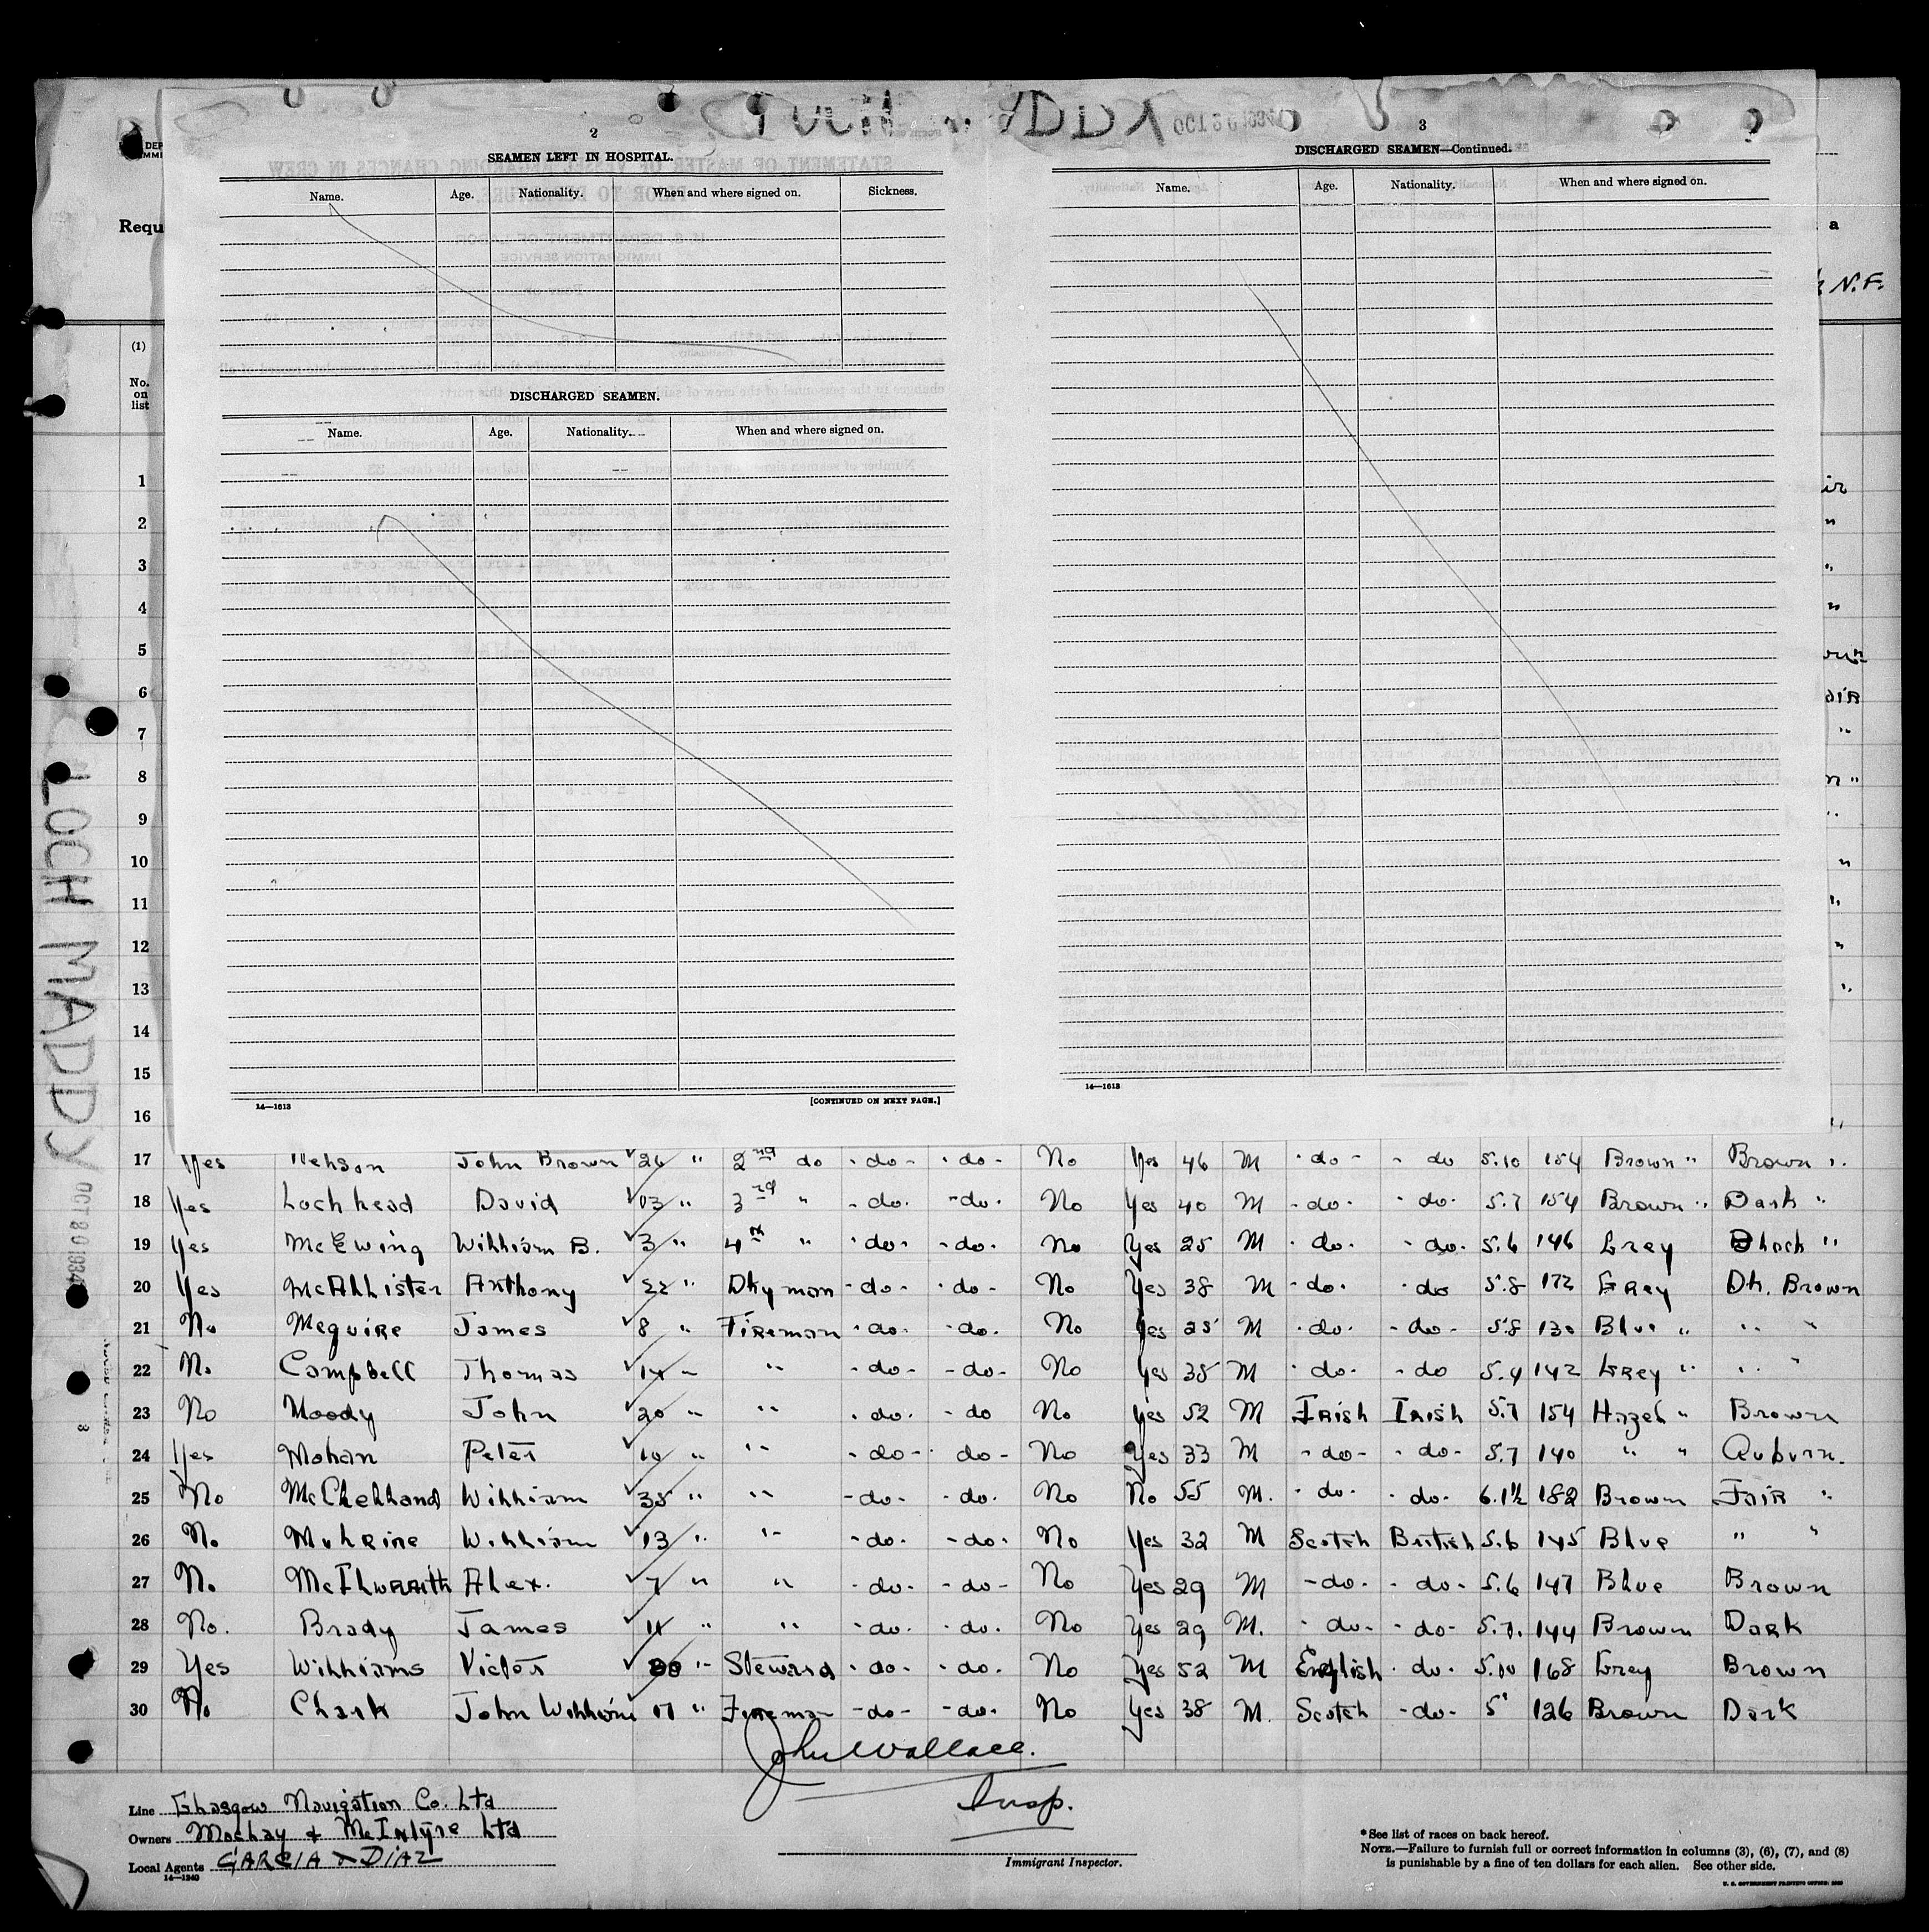 OCT 20 1934
2
SEAMEN LEFT IN HOSPITAL.
Name. Age. Nationality. When and where signed on. Sickness.
DISCHARGED SEAMEN.
Name. Age. Nationality. When and where signed on.
14—1613
[CONTINUED ON NEXT PAGE.]
3
DISCHARGED SEAMEN—Continued.
Name. Age. Nationality. When and where signed on.
14—1613
Requ
a
N.F.
(1)
No. on list
1
2
3
4
5
6
7
8
9
10
11
12
13
14
15
16
LOCH MADDY
OCT 20 1934
17 Yes John Brown 26 " 2nd do - do - - do - No Yes 46 M - do - - do 5.10 154 Brown " Brown "
18 Yes Lochhead David 03 " 3rd " - do. - do. No Yes 40 M - do - - do. 5.7 154 Brown " Dark "
19 Yes McEwing William B. 3 " 4th " - do - - do. No Yes 25 M - do. - do. 5.6 146 Grey Black "
20 Yes McAllister Anthony 22 " Dkyman - do - - do - No Yes 38 M - do. - do 5.8 172 Grey Dk. Brown
21 No Meguire James 8 " Fireman - do. - do. No Yes 25 M - do. - do - 5.8 130 Blue " " "
22 No Campbell Thomas 14 " " - do - - do - No Yes 38 M - do. - do 5.4 142 Grey " " "
23 No Moody John 20 " " - do. - do No Yes 52 M Irish Irish 5.7 154 Hazel " Brown
24 Yes Mohan Peter 10 " " - do - - do - No Yes 33 M - do - - do - 5.7 140 " " Auburn.
25 No McClelland William 35 " " - do - - do. No No 55 M. - do. - do. 6.1½ 182 Brown Fair "
26 No Mulrine William 13 " " - do. - do. No Yes 32 M Scotch British 5.6 145 Blue " "
27 No McIlwraith Alex. 7 " " - do. - do - No Yes 29 M - do. - do - 5.6 147 Blue Brown
28 No. Brady James 11 " " - do. - do. No Yes 29 M. - do. - do - 5.7. 144 Brown Dark
29 Yes Williams Victor " Steward - do. - do. No Yes 52 M English - do. 5.10 168 Grey Brown
30 No Clark John William 17 " Fireman - do - - do. No Yes 38 M. Scotch - do - 5' 126 Brown Dark
John Wallace.
Insp.
Immigrant Inspector.
Line Glasgow Navigation Co. Ltd
Owners Maclay & McIntyre Ltd
Local Agents GARCIA & DIAZ
14—1240
*See list of races on back hereof.
NOTE.—Failure to furnish full or correct information in columns (3), (6), (7), and (8)
is punishable by a fine of ten dollars for each alien. See other side.